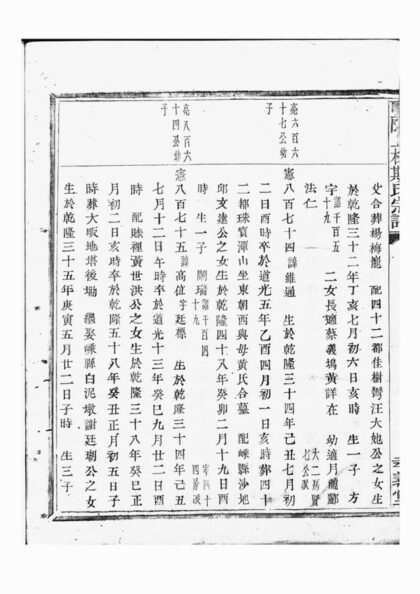 上林斯氏宗譜
父合葬楊梅瀧 配四十二都佳樹灣汪大旭公之女生
於乾隆三十二年丁亥七月初六日亥時 生一子 方
宇 諱千百五十九 二女長適蔡義塢黃詳在 幼適月塘酈
法仁
亮六百六十七公幼子
憲八百七十四 諱維通 生於乾隆三十四年己丑七月初
二日酉時卒於道光五年乙酉四月初一日亥時葬四十
二都珠寶潭山坐東朝西與母黃氏合墓 配嵊縣沙地
邱文達公之女生於乾隆四十八年癸卯二月十九日酉
時 生一子
亮八百六十四公幼子
憲八百七十五 諱高值字廷標 生於乾隆三十四年己丑
七月十二日午時卒於道光十三年癸巳九月廿二日酉
時 配賒裡黃世洪公之女生於乾隆三十八年癸巳正
月初二日亥時卒於乾隆五十八年癸丑正月初五日子
時葬大眼地塔後坳 繼娶嵊縣白泥墩謝廷瑚公之女
生於乾隆三十五年庚寅五月廿二日子時 生三子